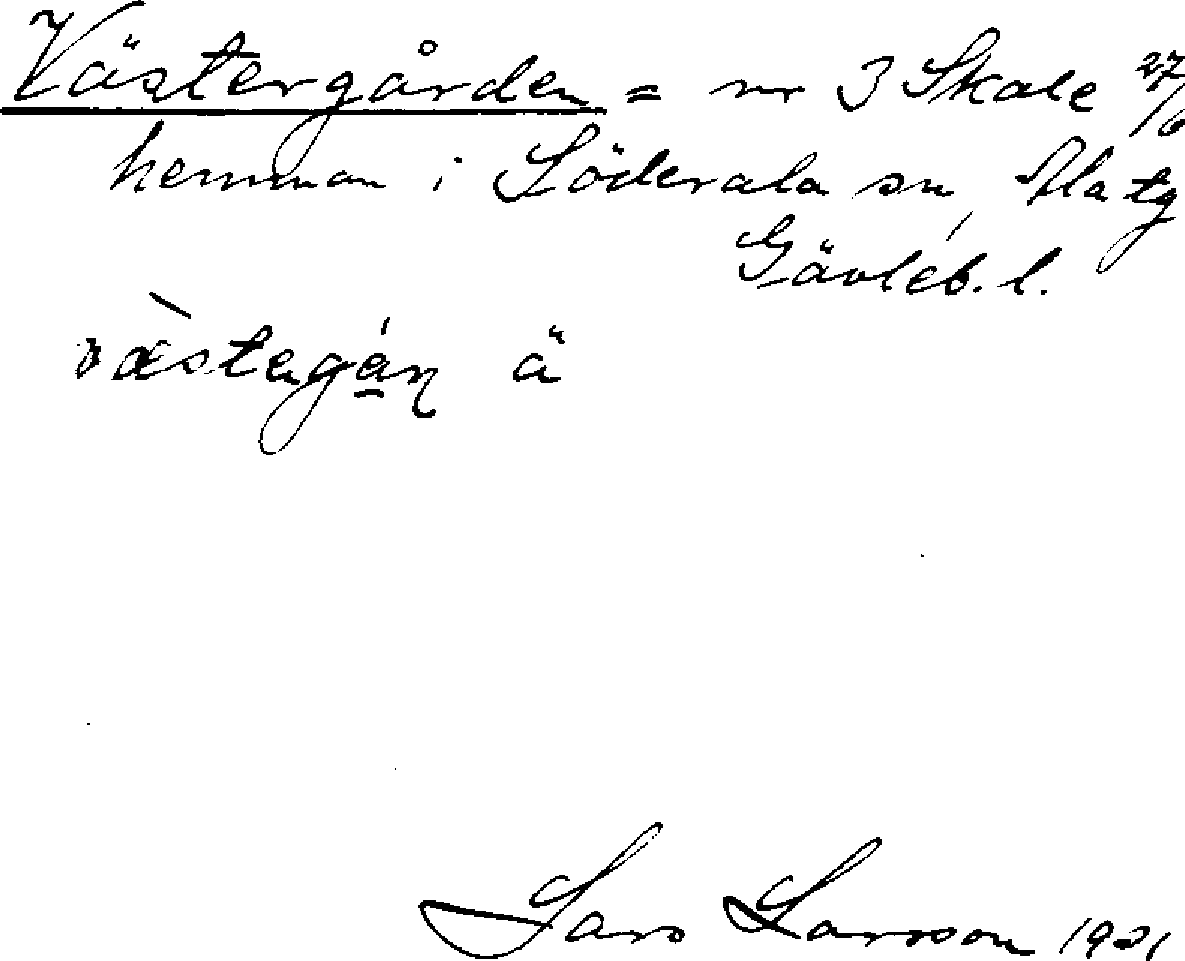 Västergården = nr 3 Skale 27/6
hemman i Söderala sn, Ala tg
Gävleb. l.
væ̀stagán ä
Lars Larsson 1931